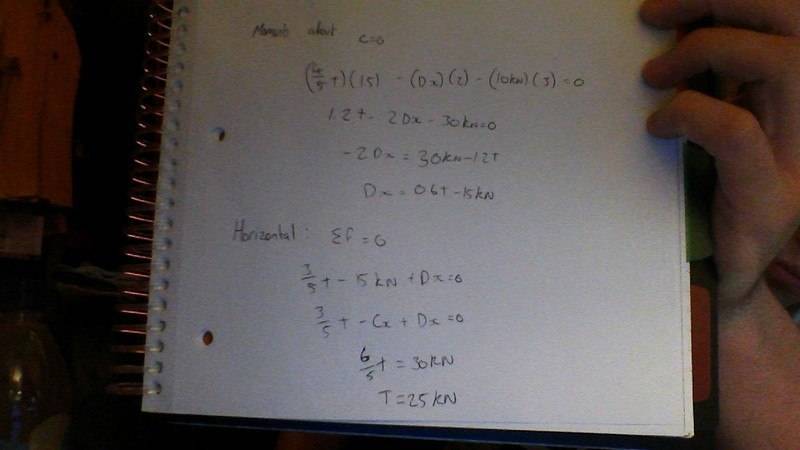 Moments about C=0
(4/5 T)(1.5) - (Dx)(2) - (10kN)(3) = 0
1.2T - 2Dx - 30kN=0
-2Dx = 30kN-1.2T
Dx = 0.6T - 15kN
Horizontal: ΣF = 0
3/5 T - 15kN + Dx=0
3/5 T - Cx + Dx=0
6/5 T = 30kN
T = 25kN